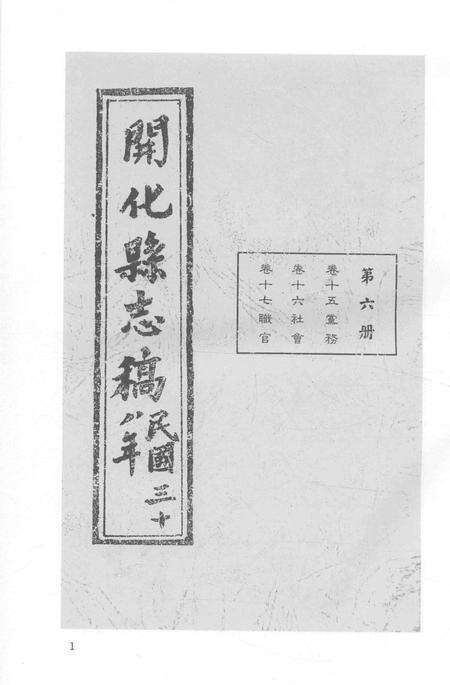 開化縣志稿民國三十
八年
第六册
卷十五黨務
卷十六社會
卷十七職官
1